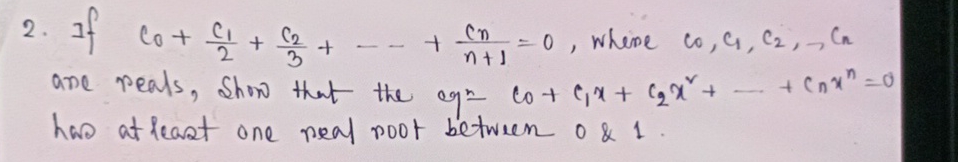 2. If c₀ + c₁/2 + c₂/3 + --- + cₙ/n+1 = 0, where c₀, c₁, c₂, -, cₙ
are reals, Show that the eqn c₀ + c₁x + c₂x² + --- + cₙxⁿ = 0
has at least one real root between 0 & 1.